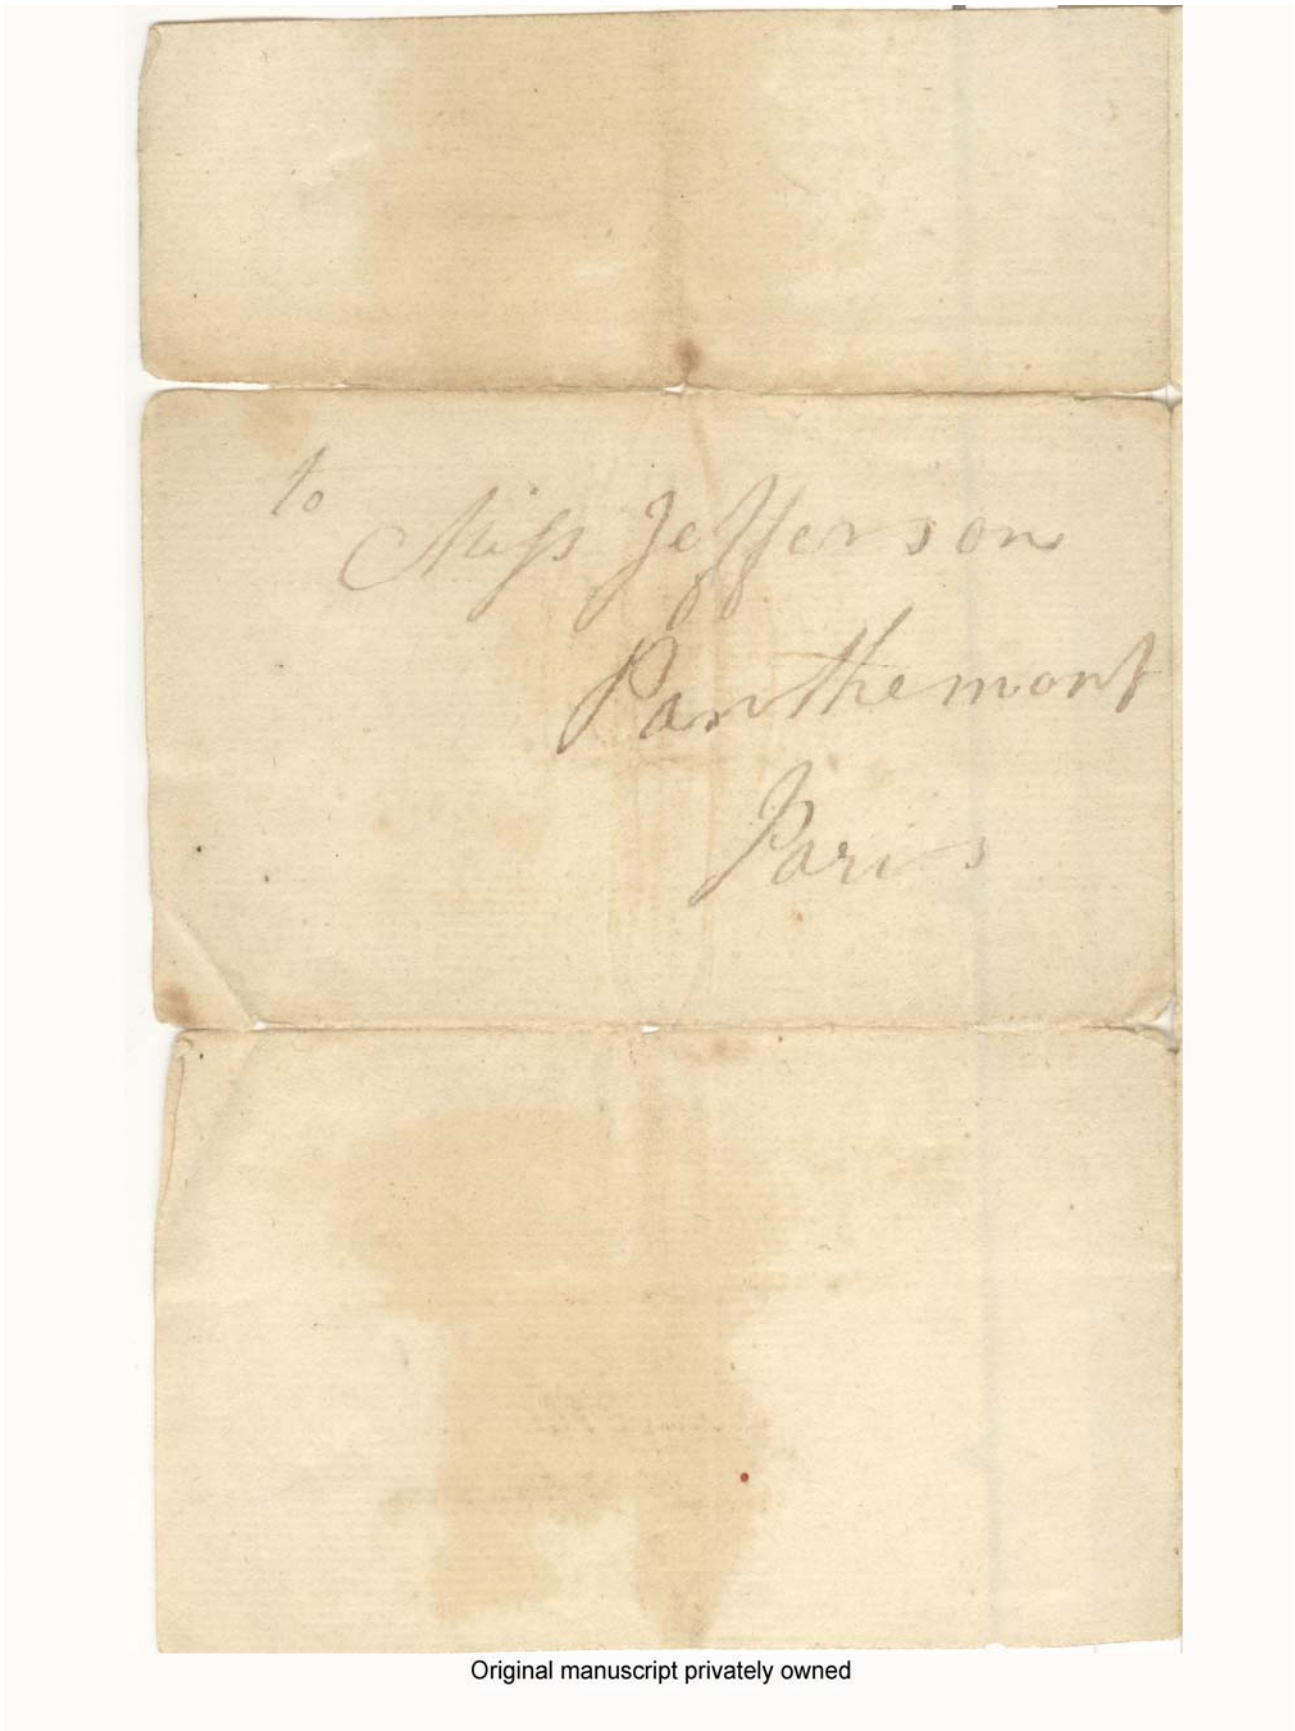 to
Miss Jefferson
Panthemont
Paris
Original manuscript privately owned